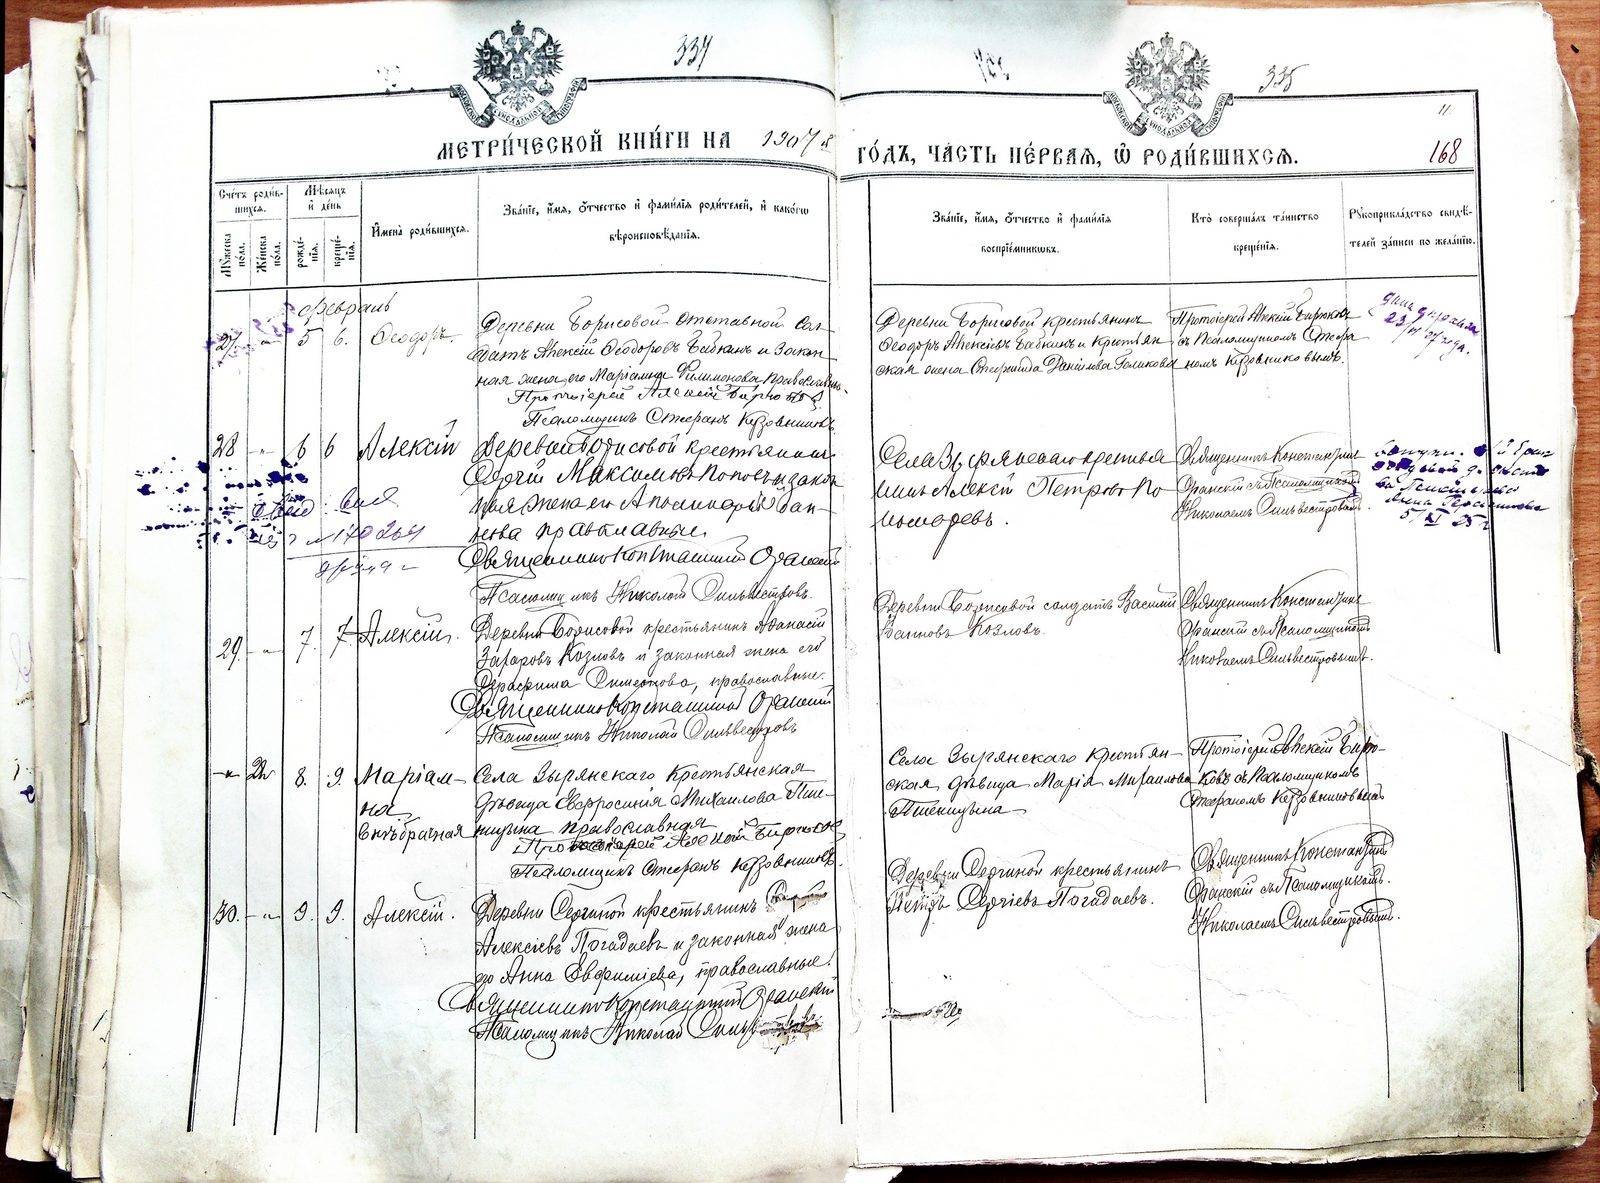 334
335
МЕТРИ́ЧЕСКОЙ КНИ́ГИ НА 1907 ГО́ДЪ, ЧА́СТЬ ПЕ́РВАЯ, Ѽ РОДИ́ВШИХСѦ.
11
168
Сче́тъ роди́в-
шихся.
Мѣ́сяцъ
и҆ де́нь
Мꙋ́жеска по́ла.
Же́нска по́ла.
рожде́-
нїѧ.
креще́-
нїѧ.
И҆мена̀ роди́вшихся.
Зва́нїе, и҆́мѧ, ѻ҆́тчество и҆ фами́лїѧ роди́телей, и҆ како́гѡ
вѣроисповѣ́данїѧ.
Зва́нїе, и҆́мѧ, ѻ҆́тчество и҆ фами́лїѧ
воспрїе́мникѡвъ.
Кто̀ соверша́лъ та́инство
креще́нїѧ.
Рꙋкоприкла́дство свидѣ́-
телей за́писи по жела́нїю.
Февраль
27. - " - 5 6. Ѳеодоръ.
Деревни Борисовой отставной сол-
датъ Алексій Ѳеодоровъ Бабкинъ и закон-
ная жена его Маріамна Филимонова православн.
Протоіерей Алексій Бирюковъ
Псаломщикъ Стефанъ Кузовниковъ.
Деревни Борисовой крестьянинъ
Ѳеодоръ Алексіевъ Бабкинъ и крестьян
ская жена Данілова Голикова
Протоіерей Алексій Бирюковъ
съ Псаломщикомъ Стефа
номъ Кузовниковымъ.
23/
года.
28 - " - 6 6 Алексій
Деревни Борисовой крестьянинъ
Сергій Максимовъ Поповъ и закон
ная жена его Аполинарія
нова православные.
Священникъ Константинъ Оранскій
Псаломщикъ Николай Сильвестровъ.
Села Зырянскаго крестья
нинъ Алексій Петровъ По
номаревъ.
Священникъ Константинъ
Оранскій съ Псаломщикомъ
Николаемъ Сильвестровымъ
29. - " - 7. 7 Алексій.
Деревни Борисовой крестьянинъ Аѳанасій
Захаровъ Козловъ и законная жена его
Серафима Симеонова, православные.
Священникъ Константинъ Оранскій
Псаломщикъ Николай Сильвестровъ
Деревни Борисовой солдатъ Василій
Козловъ.
Священникъ Константинъ
Оранскій съ Псаломщикомъ
Николаемъ Сильвестровымъ.
- " - 22 8. 9. Маріам-
на
внѣбрачная
Села Зырянскаго крестьянская
дѣвица Евфросинія Михаилова Пше-
ницына православная
Протоіерей Алексій Бирюковъ
Псаломщикъ Стефанъ Кузовниковъ.
Села Зырянскаго крестьян-
ская дѣвица Марія Михаилова
Пшеницына
Протоіерей Алексій Бирю-
ковъ съ Псаломщикомъ
Стефаномъ Кузовниковымъ
30. - " - 9. 9. Алексій.
Деревни Сергиной крестьянинъ
Алексіевъ Погадаевъ и законная жена
его Анна Евфиміева, православные.
Священникъ Константинъ Оранскій
Псаломщикъ Николай
Деревни Сергиной крестьянинъ
Петръ Сергіевъ Погадаевъ.
Священникъ Константинъ
Оранскій съ Псаломщикомъ.
Николаемъ Сильвестровымъ.